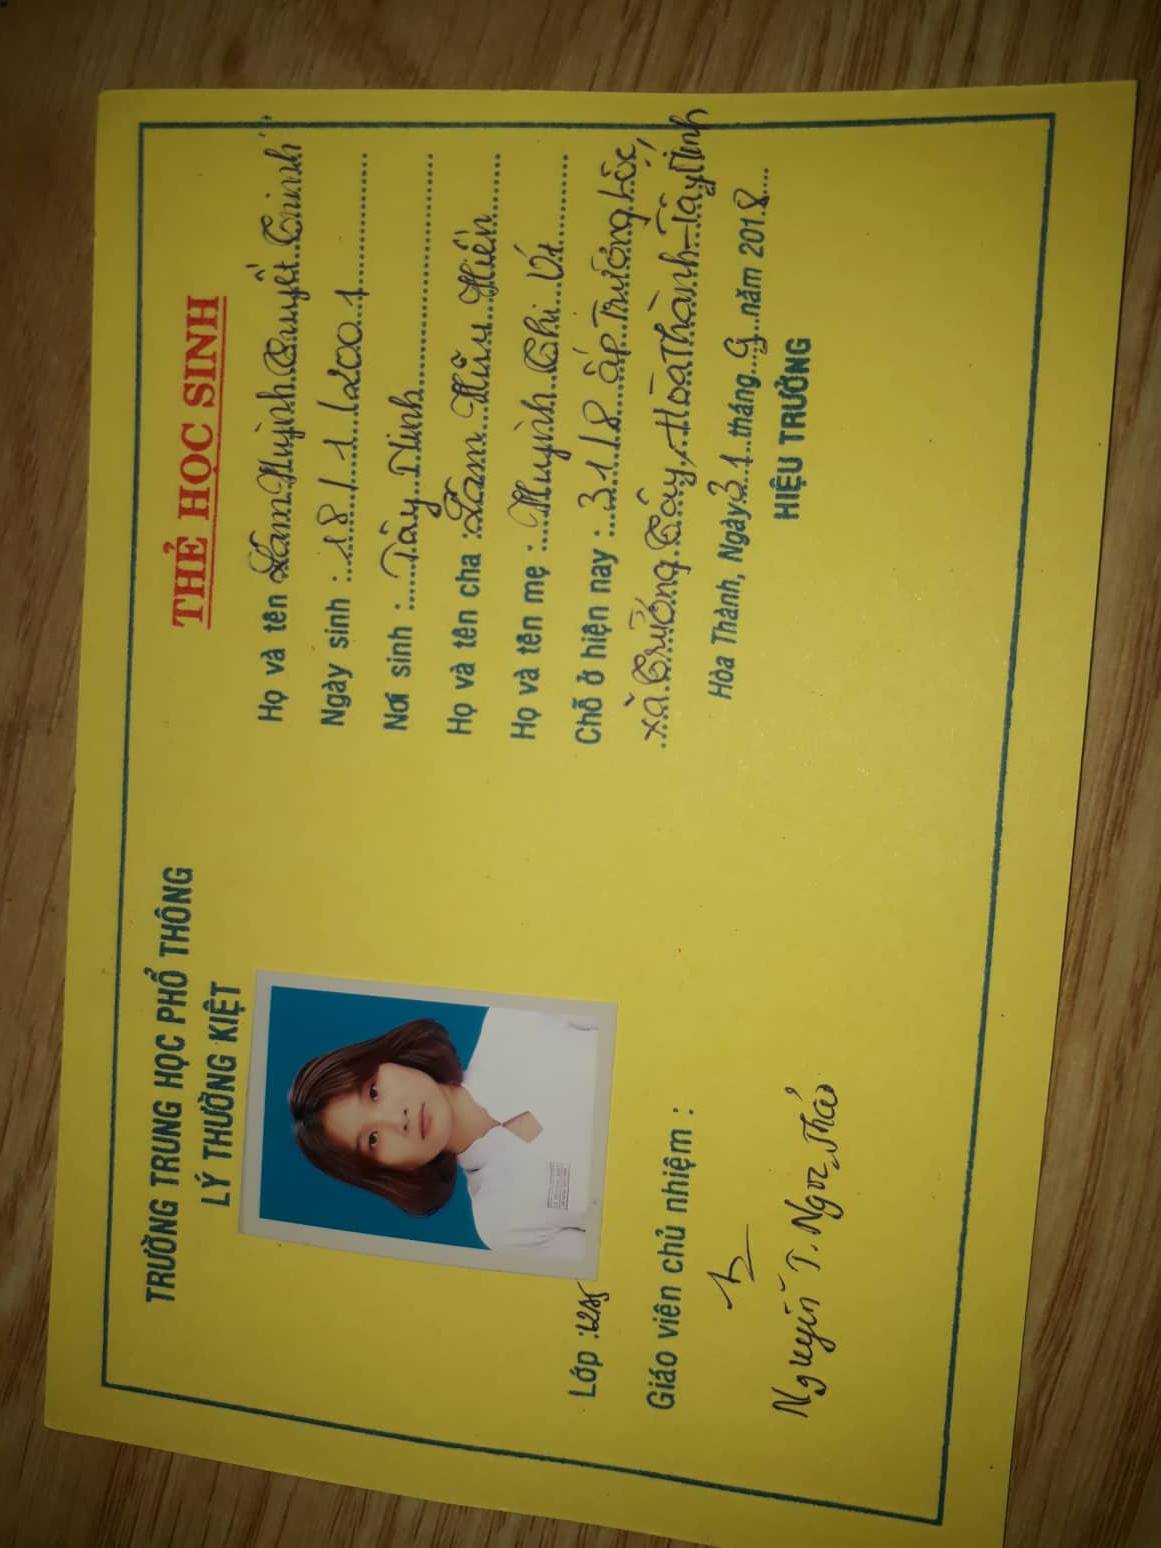 TRƯỜNG TRUNG HỌC PHỔ THÔNG
LÝ THƯỜNG KIỆT
Lớp :12A5
Giáo viên chủ nhiệm :
Nguyễn T. Ngọc Thảo
THẺ HỌC SINH
Họ và tên Lâm Huỳnh Quyền Trinh
Ngày sinh :...18./.1./.2001...
Nơi sinh :...Tây Ninh...
Họ và tên cha :Lâm Hữu Hiền...
Họ và tên mẹ :...Huỳnh Thi Út...
Chỗ ở hiện nay :...31/8 ấp Trường Lộc,
xã Trường Tây, Hòa Thành-Tây Ninh
Hòa Thành, Ngày 31 tháng 9 năm 2018
HIỆU TRƯỞNG